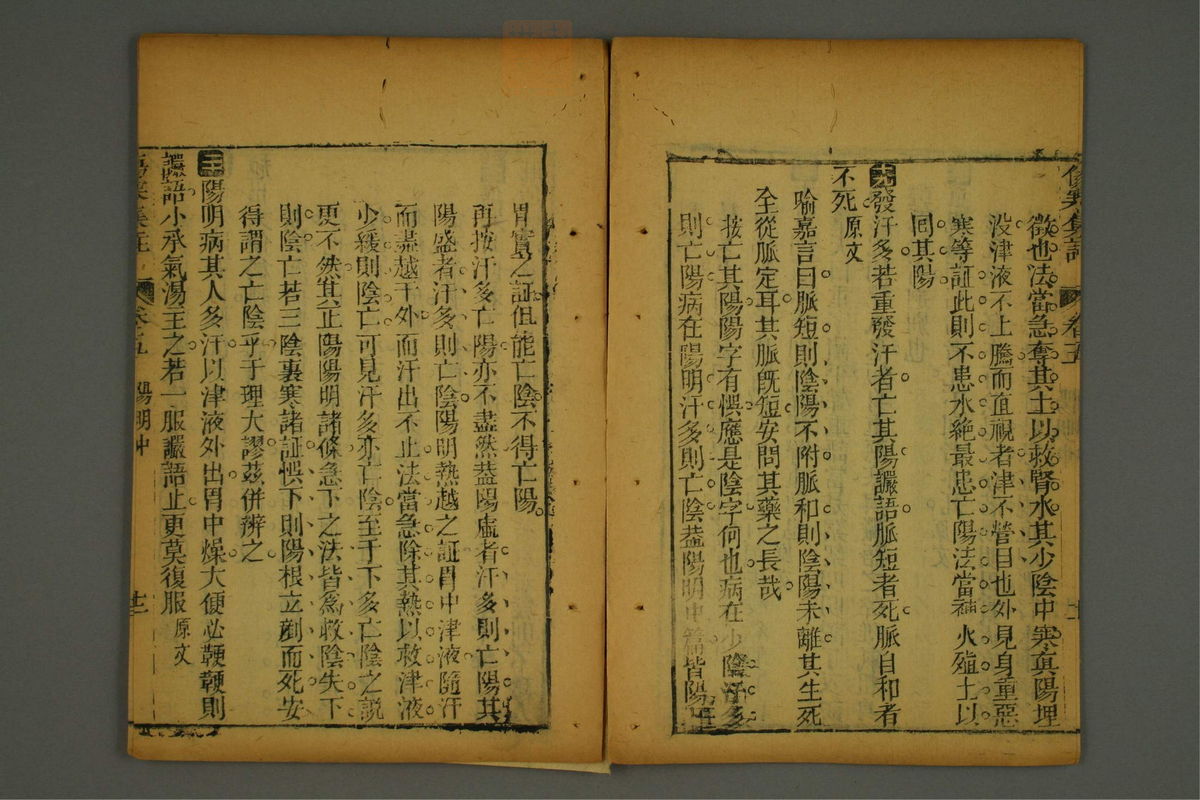 傷寒集註 卷五 十一
徵也法當急奪其土以救腎水其少陰中寒真陽埋
没津液不上騰而直視者津不營目也外見身重惡
寒等証此則不患水絶最患亡陽法當補火殖土以
回其陽
十九發汗多若重發汗者亡其陽讝語脈短者死脈自和者
不死原文
喻嘉言曰脈短則陰陽不附脈和則陰陽未離其生死
全從脈定耳其脈旣短安問其藥之長哉
按亡其陽陽字有悞應是陰字何也病在少陰汗多
則亡陽病在陽明汗多則亡陰葢陽明中篇皆陽
胃實之証但能亡陰不得亡陽
再按汗多亡陽亦不盡然葢陽虛者汗多則亡陽其
陽盛者汗多則亡陰陽明熱越之証胃中津液隨汗
而盡越于外而汗出不止法當急除其熱以救津液
少緩則陰亡可見汗多亦亡陰至于下多亡陰之説
更不然宜正陽陽明諸條急下之法皆為救陰失下
則陰亡若三陰裏寒諸証悞下則陽根立剷而死安
得謂之亡陰乎于理大謬茲併辨之
二十陽明病其人多汗以津液外出胃中燥大便必鞕鞕則
讝語小承氣湯主之若一服讝語止更莫復服原文
卷五 陽明中 十二